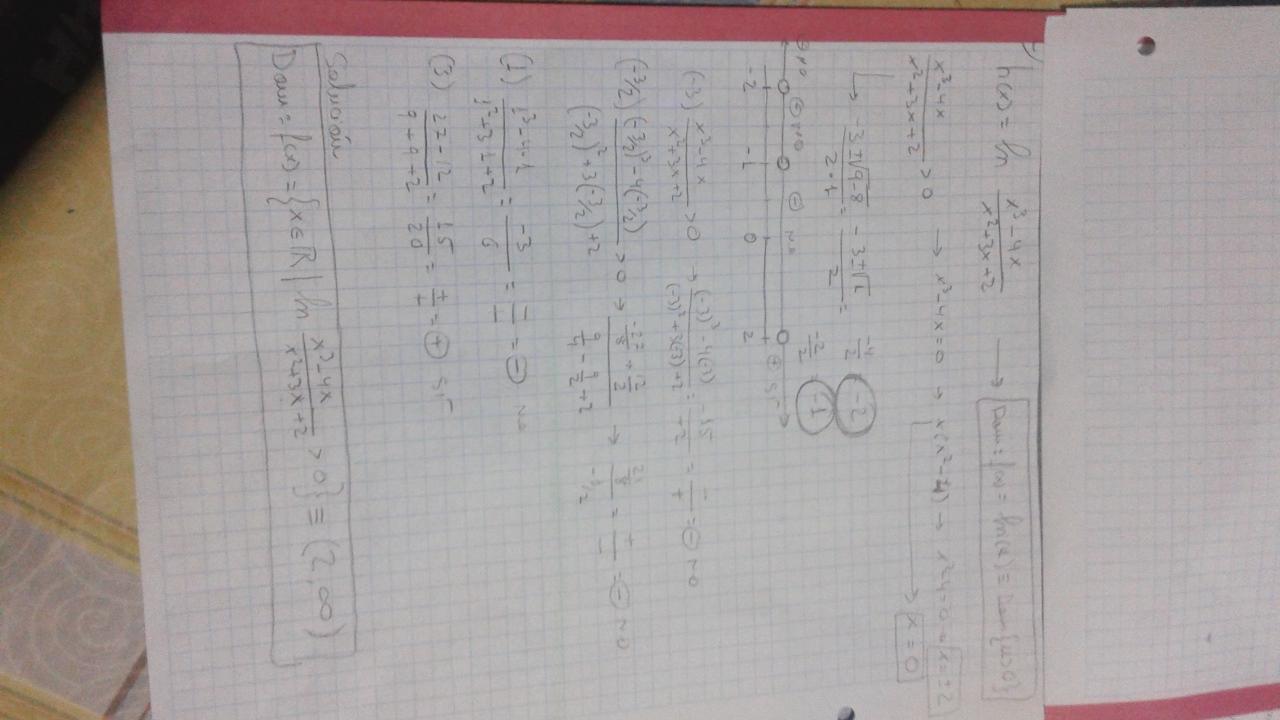 h(x) = ln \frac{x³-4x}{x²+3x+2} → Dom = f(x) = ln(u) ≡ Dom{u>0}
\frac{x³-4x}{x²+3x+2} > 0 → x³-4x=0 → x(x²-4) → x²-4=0 = x=±2
→ x=0
→ \frac{-3±√9-8}{2·1} = \frac{-3±√1}{2} = \frac{-4}{2} (-2)
\frac{-2}{2} (-1)
⊖ NO ⊕ NO ⊖ NO ⊕ SI
-2 -1 0 2
(-3) \frac{x³-4x}{x²+3x+2} > 0 → \frac{(-3)³-4(-3)}{(-3)²+3(-3)+2} = \frac{-15}{+2} = \frac{-}{+} = ⊖ NO
(-3/2) \frac{(-3/2)³-4(-3/2)}{(-3/2)²+3(-3/2)+2} > 0 → \frac{\frac{-27}{8}+\frac{12}{2}}{\frac{9}{4}-\frac{9}{2}+2} → = \frac{+}{-} = ⊖ NO
(1) \frac{1³-4·1}{1²+3·1+2} = \frac{-3}{6} = = ⊖ NO
(3) \frac{27-12}{9+9+2} = \frac{15}{20} = \frac{+}{+} = ⊕ SI
Solución
Dom = f(x) = {x∈R | ln \frac{x³-4x}{x²+3x+2} > 0} ≡ (2,∞)